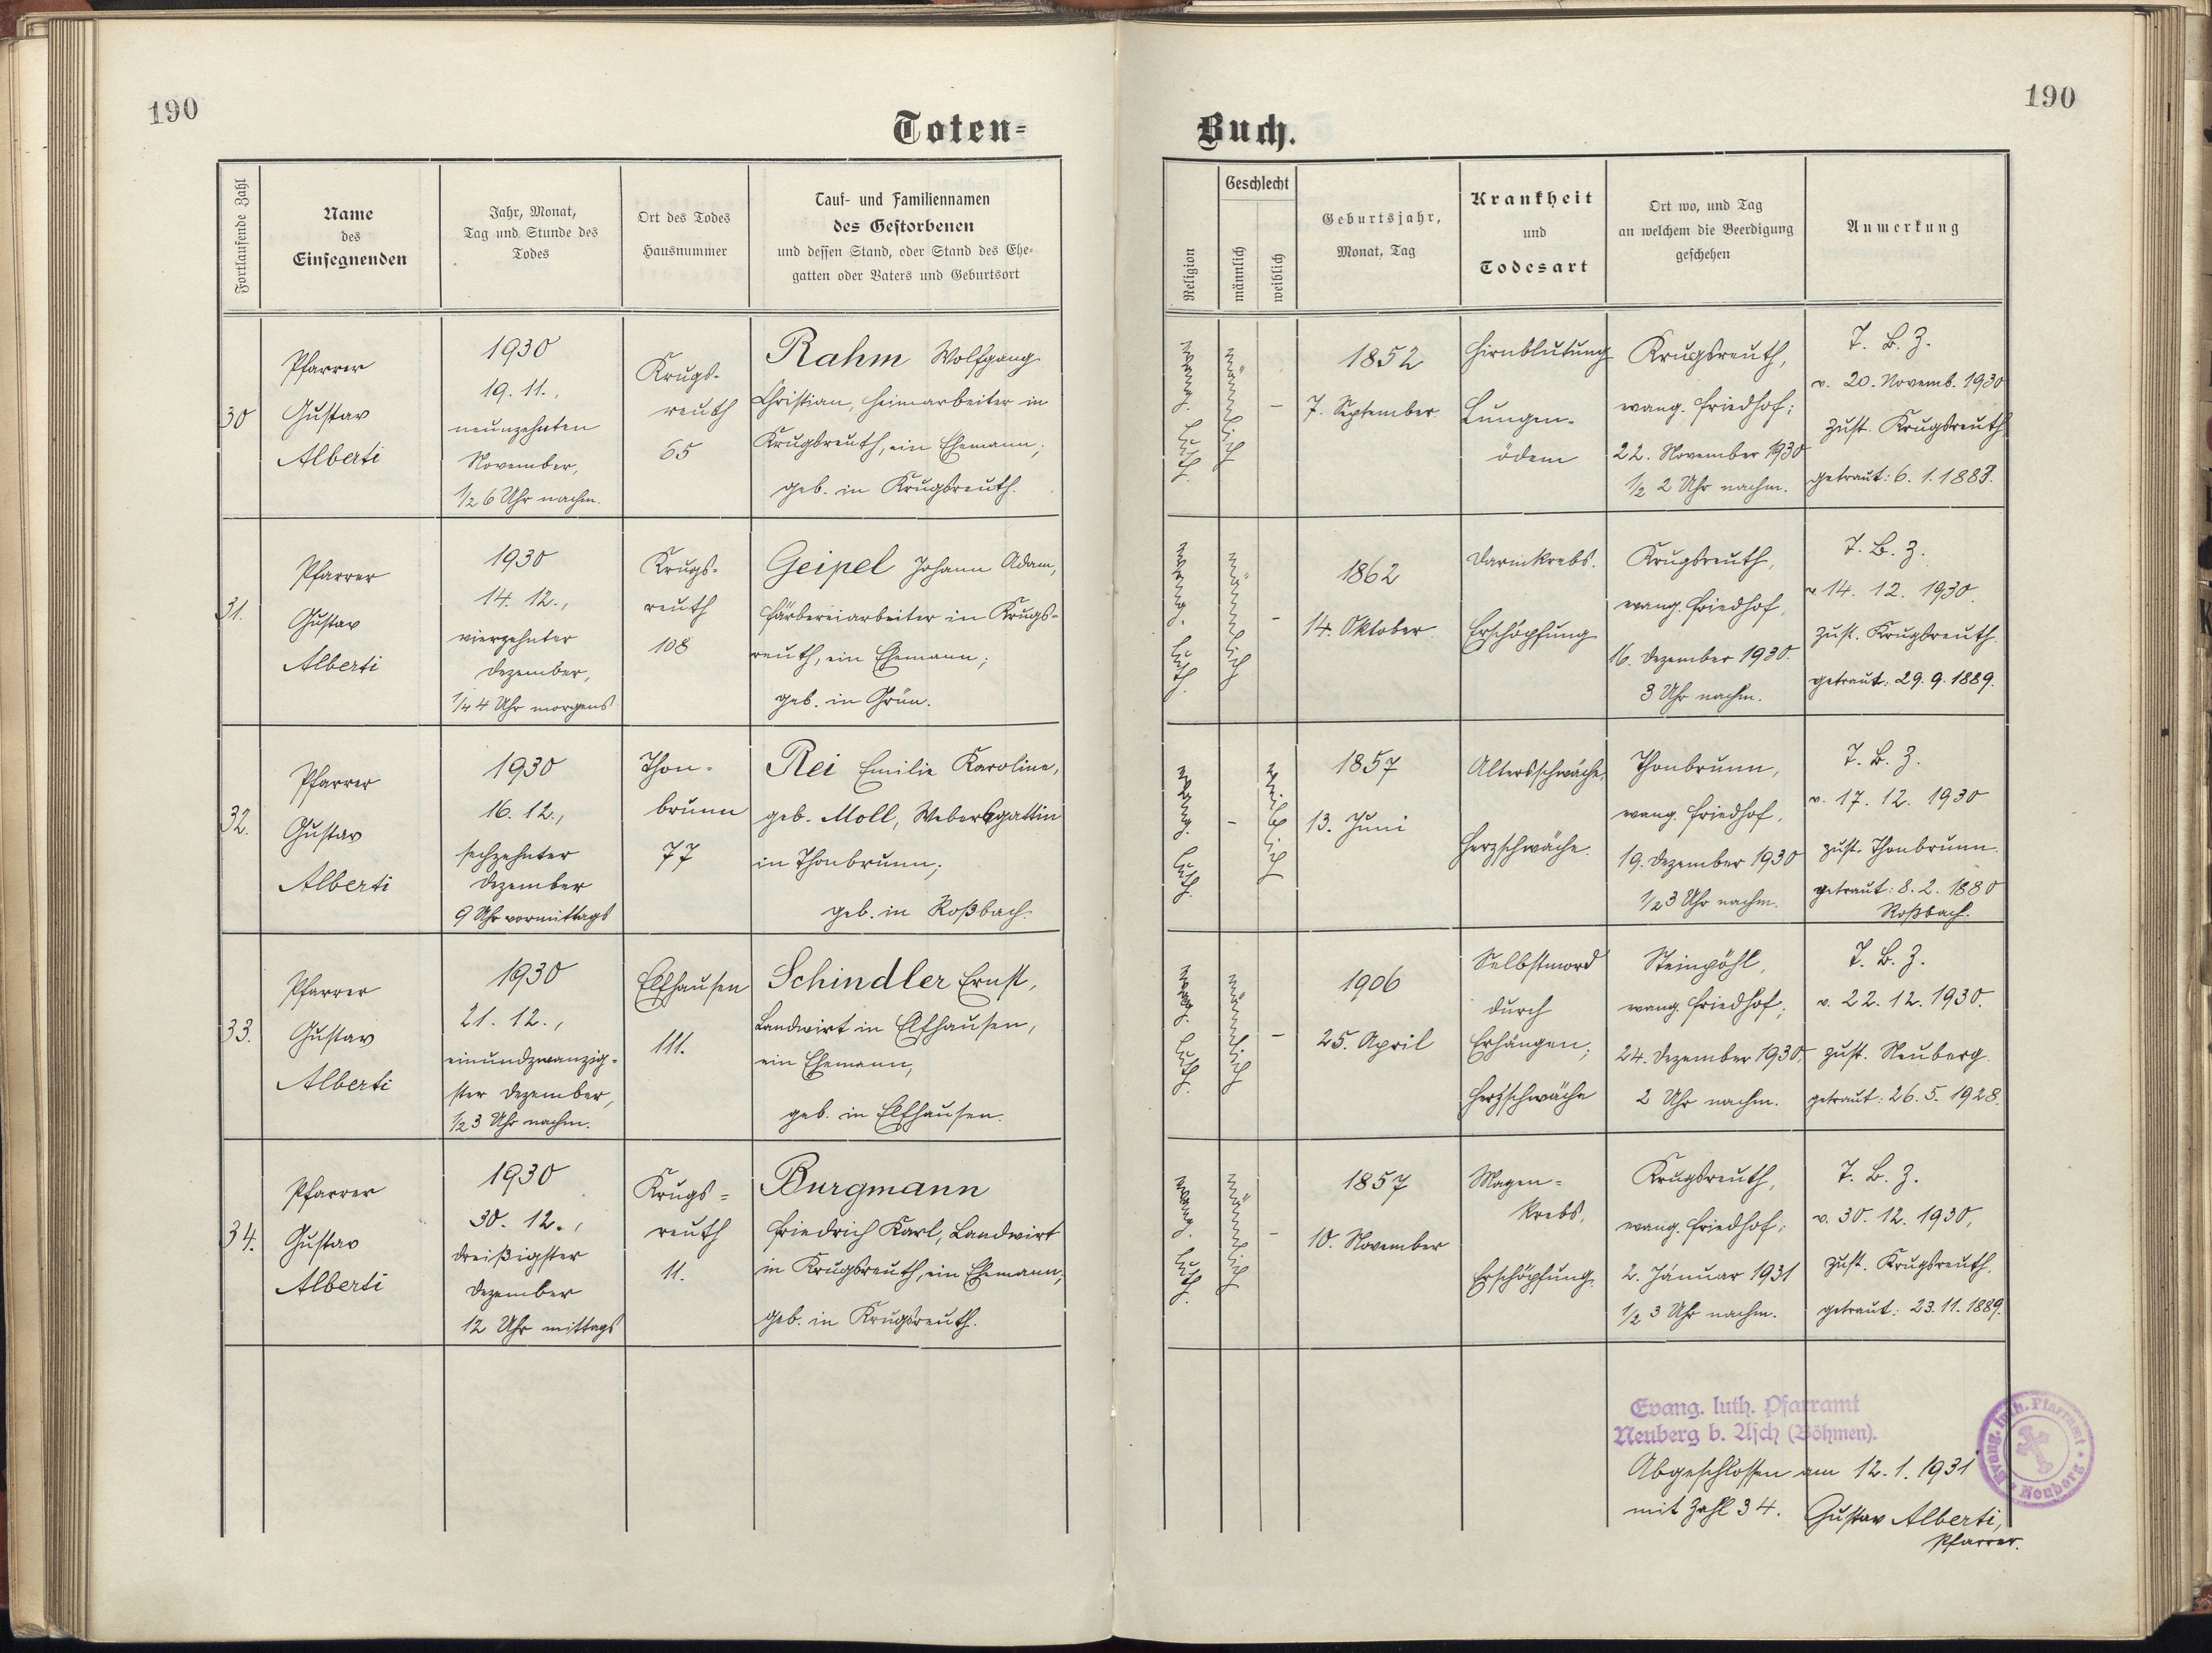 190
190
Toten-
Buch.
Fortlaufende Zahl
Name
des
Einsegnenden
Jahr, Monat,
Tag und Stunde des
Todes
Ort des Todes
Hausnummer
Tauf- und Familiennamen
des Gestorbenen
und dessen Stand, oder Stand des Ehe-
gatten oder Vaters und Geburtsort
Religion
Geschlecht
männlich
weiblich
Geburtsjahr,
Monat, Tag
Krankheit
und
Todesart
Ort wo, und Tag
an welchem die Beerdigung
geschehen
Anmerkung
30
Pfarrer
Gustav
Alberti
1930
19. 11.,
neunzehnten
November,
1/2 6 Uhr nachm.
Krugs-
reuth
65
Rahm Wolfgang
Christian, Heimarbeiter in
Krugsreuth, ein Ehemann;
geb. in Krugsreuth.
evang. luth.
männlich
-
1852
7. September.
Hirnblutung
Lungen-
ödem
Krugsreuth,
evang. Friedhof;
22. November 1930
1/2 2 Uhr nachm.
T. B. Z.
v. 20. Novemb. 1930
zust. Krugsreuth
getraut: 6. 1. 1883.
31.
Pfarrer
Gustav
Alberti
1930
14. 12.,
vierzehnter
Dezember,
1/4 4 Uhr morgens
Krugs-
reuth
108
Geipel Johann Adam,
Färbereiarbeiter in Krugs-
reuth, ein Ehemann;
geb. in Grün.
evang. luth.
männlich
-
1862
14. Oktober.
Darmkrebs.
Erschöpfung
Krugsreuth,
evang. Friedhof,
16. Dezember 1930.
3 Uhr nachm.
T. B. Z.
v. 14. 12. 1930.
zust. Krugsreuth.
getraut: 29. 9. 1889.
32.
Pfarrer
Gustav
Alberti
1930
16. 12.,
sechzehnter
Dezember
9 Uhr vormittags
Thon-
brunn
77
Rei Emilie Karoline,
geb. Moll, Webersgattin
in Thonbrunn;
geb. in Roßbach.
evang. luth.
-
weiblich
1857
13. Juni
Altersschwäche,
Herzschwäche.
Thonbrunn,
evang. Friedhof,
19. Dezember 1930
1/2 3 Uhr nachm.
T. B. Z.
v. 17. 12. 1930
zust. Thonbrunn.
getraut: 8. 2. 1880
Roßbach.
33.
Pfarrer
Gustav
Alberti
1930
21. 12.,
einundzwanzig-
ster Dezember,
1/2 3 Uhr nachm.
Elfhausen
111.
Schindler Ernst,
Landwirt in Elfhausen,
ein Ehemann,
geb. in Elfhausen.
evang. luth.
männlich
-
1906
25. April
Selbstmord
durch
Erhängen;
Herzschwäche
Steinpöhl,
evang. Friedhof;
24. Dezember 1930,
2 Uhr nachm.
T. B. Z.
v. 22. 12. 1930.
zust. Neuberg.
getraut: 26. 5. 1928.
34.
Pfarrer
Gustav
Alberti
1930
30. 12.,
dreißigster
Dezember
12 Uhr mittags
Krugs-
reuth
11.
Burgmann
Friedrich Karl, Landwirt
in Krugsreuth, ein Ehemann;
geb. in Krugsreuth.
evang. luth.
männlich
-
1857
10. November
Magen-
krebs,
Erschöpfung.
Krugsreuth,
evang. Friedhof;
2. Januar 1931
1/2 3 Uhr nachm.
T. B. Z.
v. 30. 12. 1930,
zust. Krugsreuth.
getraut: 23. 11. 1889.
Evang. luth. Pfarramt
Neuberg b. Asch (Böhmen).
Evang. luth. Pfarramt * Neuberg *
Abgeschlossen am 12. 1. 1931
mit Zahl 34. Gustav Alberti,
Pfarrer.